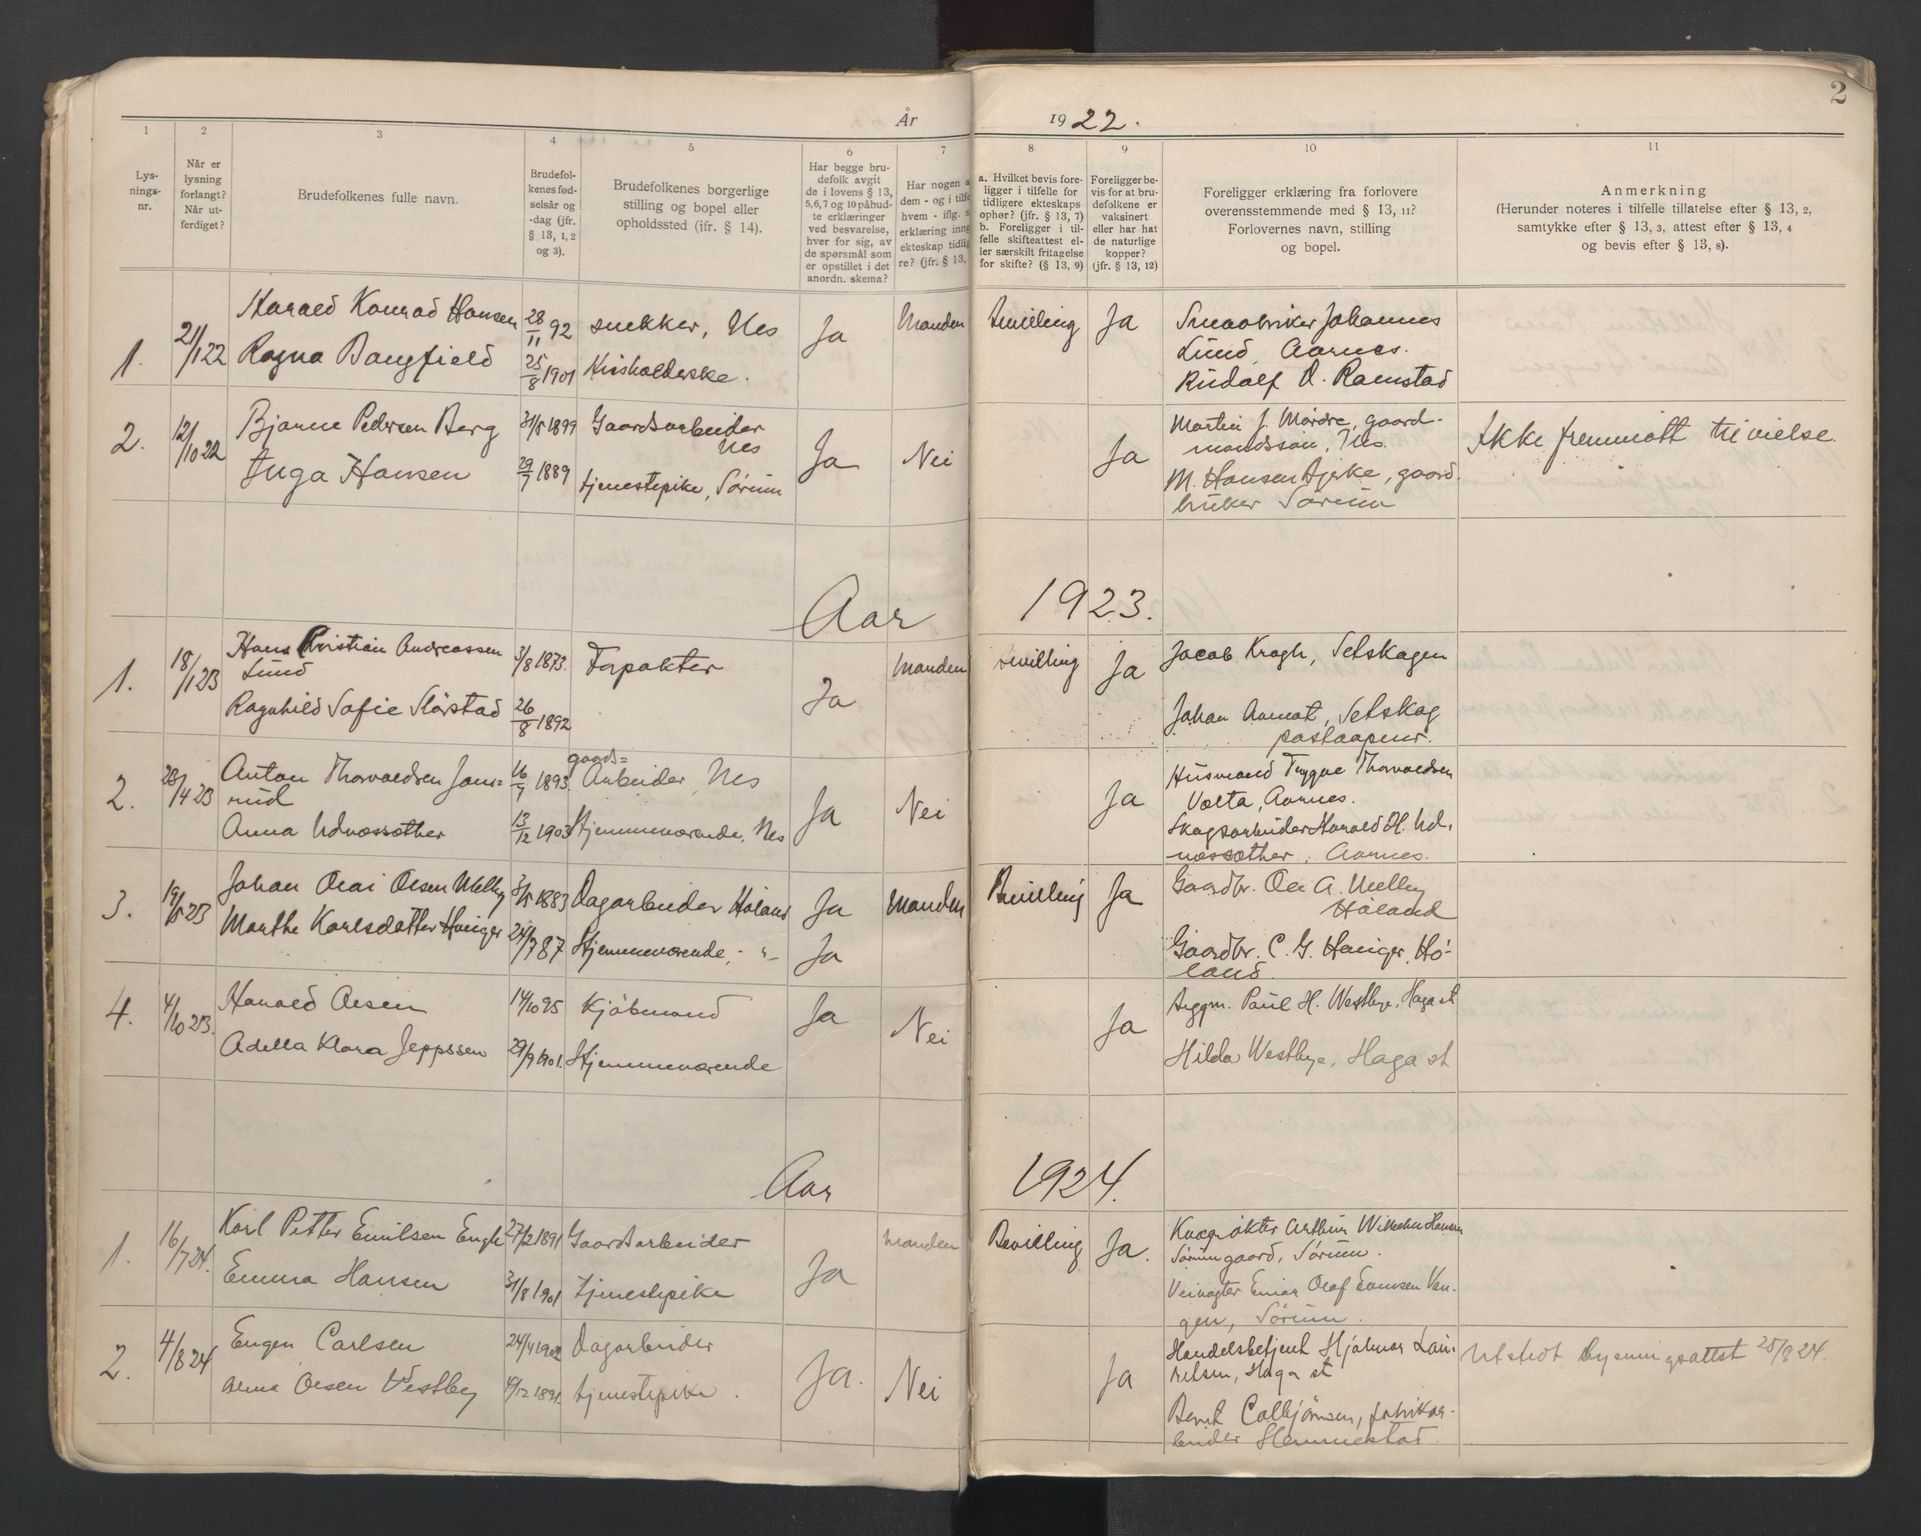 År 1922.
2
1
2
3
4
5
6
7
8
9
10
11
Lys-
nings-
nr.
Når er
lysning
forlangt?
Når ut-
ferdiget?
Brudefolkenes fulle navn.
Brudefol-
kenes fød-
selsår og
-dag (jfr.
§ 13, 1, 2
og 3).
Brudefolkenes borgerlige
stilling og bopel eller
opholdssted (jfr. § 14).
Har begge bru-
defolk avgit
de i lovens § 13,
5, 6, 7 og 10 påbud-
te erklæringer
ved besvarelse,
hver for sig, av
de spørsmål som
er opstillet i det
anordn. skema?
Har nogen a
dem - og i tilfe
hvem - iflg. s
erklæring inng
ekteskap tidlig
re? (jfr. § 13,
a. Hvilket bevis fore-
ligger i tilfelle for
tidligere ekteskaps
ophør? (jfr. § 13, 7)
b. Foreligger i til-
felle skifteattest el-
ler særskilt fritagelse
for skifte? (§ 13, 9)
Foreligger be-
vis for at bru-
defolkene er
vaksinert
eller har hat
de naturlige
kopper?
(jfr. § 13, 12)
Foreligger erklæring fra forlovere
overensstemmende med § 13, 11?
Forlovernes navn, stilling
og bopel.
Anmerkning
(Herunder noteres i tilfelle tillatelse efter § 13, 2,
samtykke efter § 13, 3, attest efter § 13, 4
og bevis efter § 13, 8).
1.
21/1 22
Harald Konrad Hansen
Ragna Bangfield
28/11 92
25/8 1901
snekker, Nes
Husholderske.
Ja
Manden
Bevilling
Ja
Smaabruker Johannes
Lund, Aarnes.
Rudolf O. Ramstad
2.
12/10 22
Bjarne Pedersen Berg
Inga Hansen
31/5 1899
29/7 1889
Gaardsarbeider
Nes
tjenestepike, Sörum
Ja
Nei
Ja
Martin J. Mårdre, gaard-
mandssøn, Nes
M. Hansen Gjerke, gaard
bruker Sörum
Ikke fremmött til vielse.
Aar 1923.
1.
18/1 23
Hans Kristian Andreassen
Lund
Ragnhild Sofie Slörstad
3/8 1873.
26/8 1892
Forpakter
Ja
Manden
Bevilling
Ja
Jacob Kragh, Setskogen
Johan Aamot, Setskog
postaapner.
2.
28/4 23
Anton Thorvaldsen Jons=
rud
Anna Udnæssæther
16/7 1893.
13/12 1903
gaards=
Arbeider, Nes
Hjemmeværende, Nes
Ja
Nei
Ja
Husmand Trygve Thorvaldsen
Valta, Aarnes.
Skogsarbeider Harald H. Ud-
næssæther, Aarnes.
3.
19/5 23
Johan Olai Olsen Melby
Marthe Karlsdatter Haneger
3/5 1883
24/7 87
Dagarbeider Höland
Hjemmeværende, - " -
Ja
Ja
Manden
Bevilling
Ja
Gaardbr. Ole A. Melby
Höland
Gaardbr. C. G. Haneger, Hö-
land.
4.
4/10 23.
Harald Olsen
Adella Klara Jeppssen
14/10 95
29/9 1901.
Kjöbmand
Hjemmeværende
Ja
Nei
Ja
Byggm. Paul H. Westbye, Haga st
Hilda Westbye, Haga st
Aar 1924.
1.
16/7 24.
Karl Petter Emilsen Engh
Emma Hansen
27/2 1891
31/8 1901
Gaardsarbeider
tjenestepike
Ja
Manden
Bevilling
Ja.
Kvægrökter Arthur Wilhelm Hansen
Sörum gaard, Sörum.
Veivogter Einar Olaf Evensen Van-
gen, Sörum.
2.
4/8 24
Eugen Carlsen
Alma Olsen Vestby
24/4 1902
10/12 1891.
Dagarbeider
tjenestepike.
Ja.
Nei
Ja
Handelsbetjent Hjalmar Lau-
ritsen, Haga st
Bernt Colbjörnsen, fabrikar-
beider Hemnestad
Utstedt lysningsattst 25/8 24.